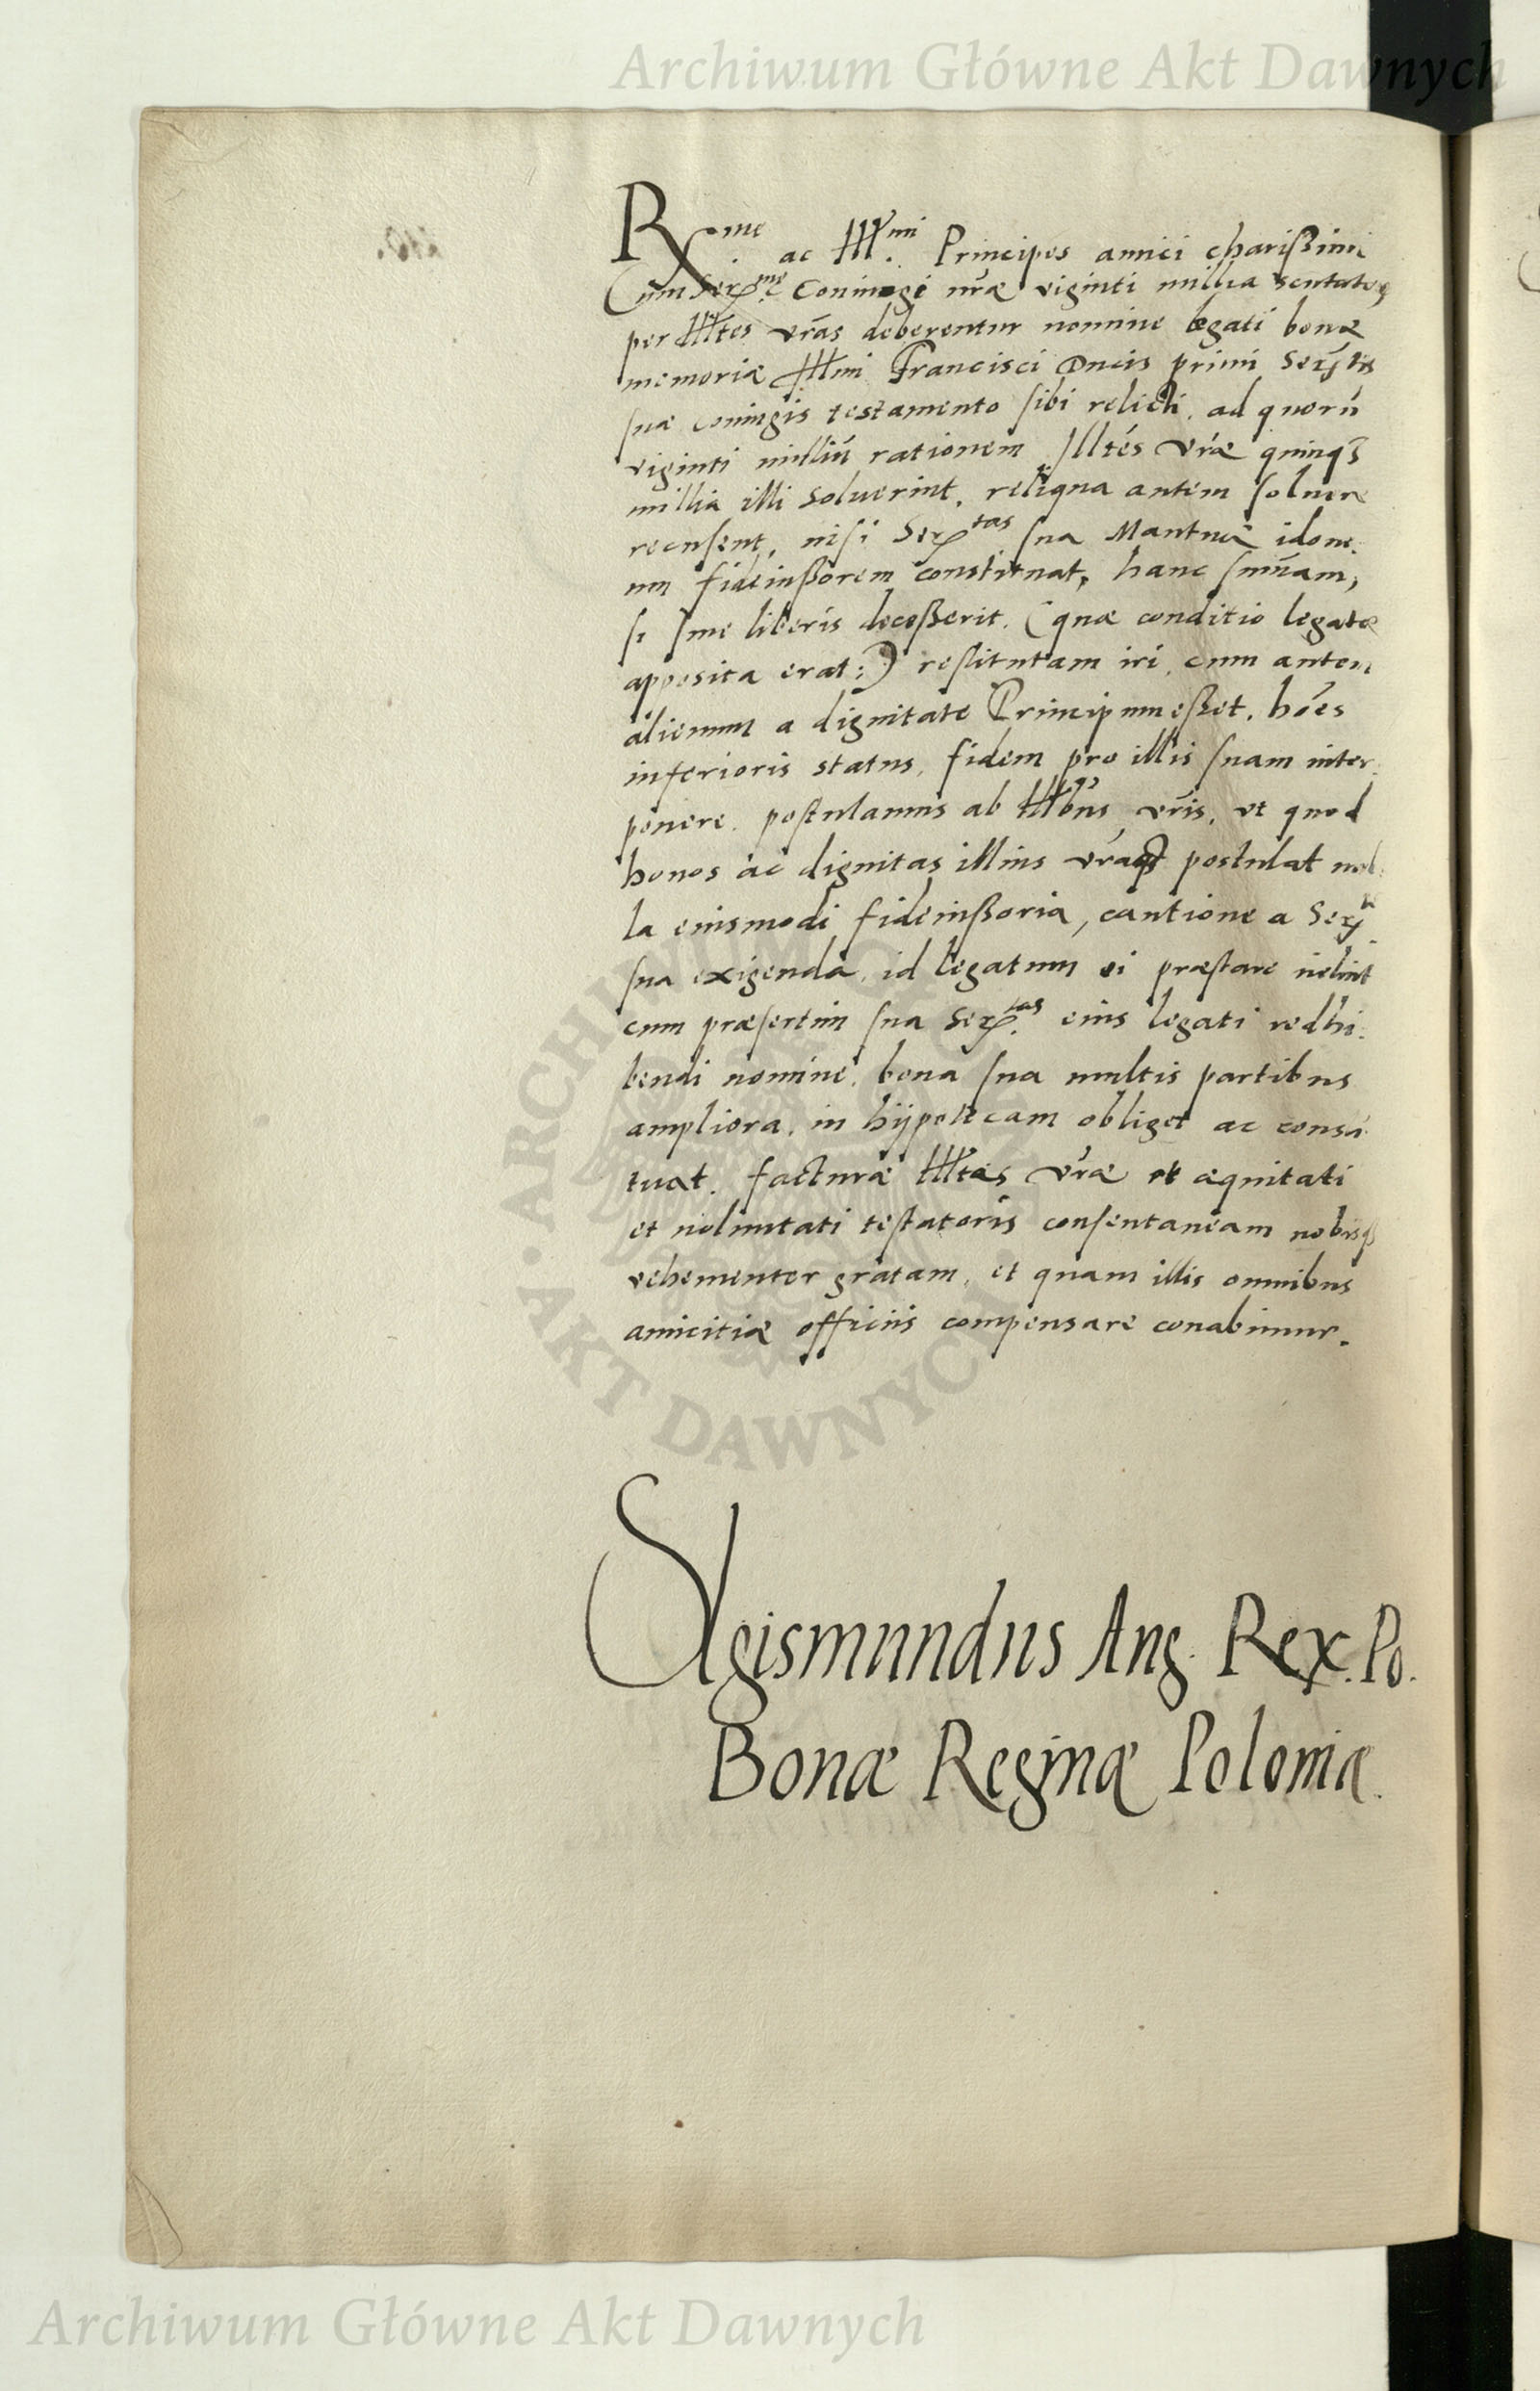 Archiwum Główne Akt Dawnych
Rx.me ac Ill.mi Principes amici charißimi
Cum Ser.me Coniugi nr̃ae viginti millia scutatoꝝ
per Illtes vr̃as deberentur nomine legati bonæ
memoriæ Illmi Francisci Ducis primi Ser.tis
suæ coniugis testamento sibi relicti, ad quorũ
viginti milliũ rationem Illtes vr̃æ quinqꝫ
millia illi soluerint, reliqua autem soluere
recusent, nisi Ser.tas sua Mantuæ idone-
um fideiußorem constituat, hanc sum̃am,
si sine liberis deceßerit (quæ conditio legato
apposita erat:) restitutam iri, cum autem
alienum a dignitate Principum eßet, hoẽs
inferioris status, fidem pro illis suam inter-
ponere, postulamus ab Illbus vr̃is, vt quod
honos ac dignitas illius vr̃aqꝫ postulat nul-
la eiusmodi fideiußoria, cautione a Ser.te
sua exigenda, id legatum ei præstare uelint
cum præsertim sua Ser.tas eius legati redhi-
bendi nomine, bona sua multis partibus
ampliora, in hypotecam obliget ac consti-
tuat. facturæ Illtes vr̃æ et æquitati
et uoluntati testatoris consentaneam nobisqꝫ
vehementer gratam, et quam illis omnibus
amicitiæ officiis compensare conabimur.
Sigismundus Aug. Rex. Po.
Bonæ Reginæ Poloniæ.
ARCHIWUM
AKT DAWNYCH
Archiwum Główne Akt Dawnych